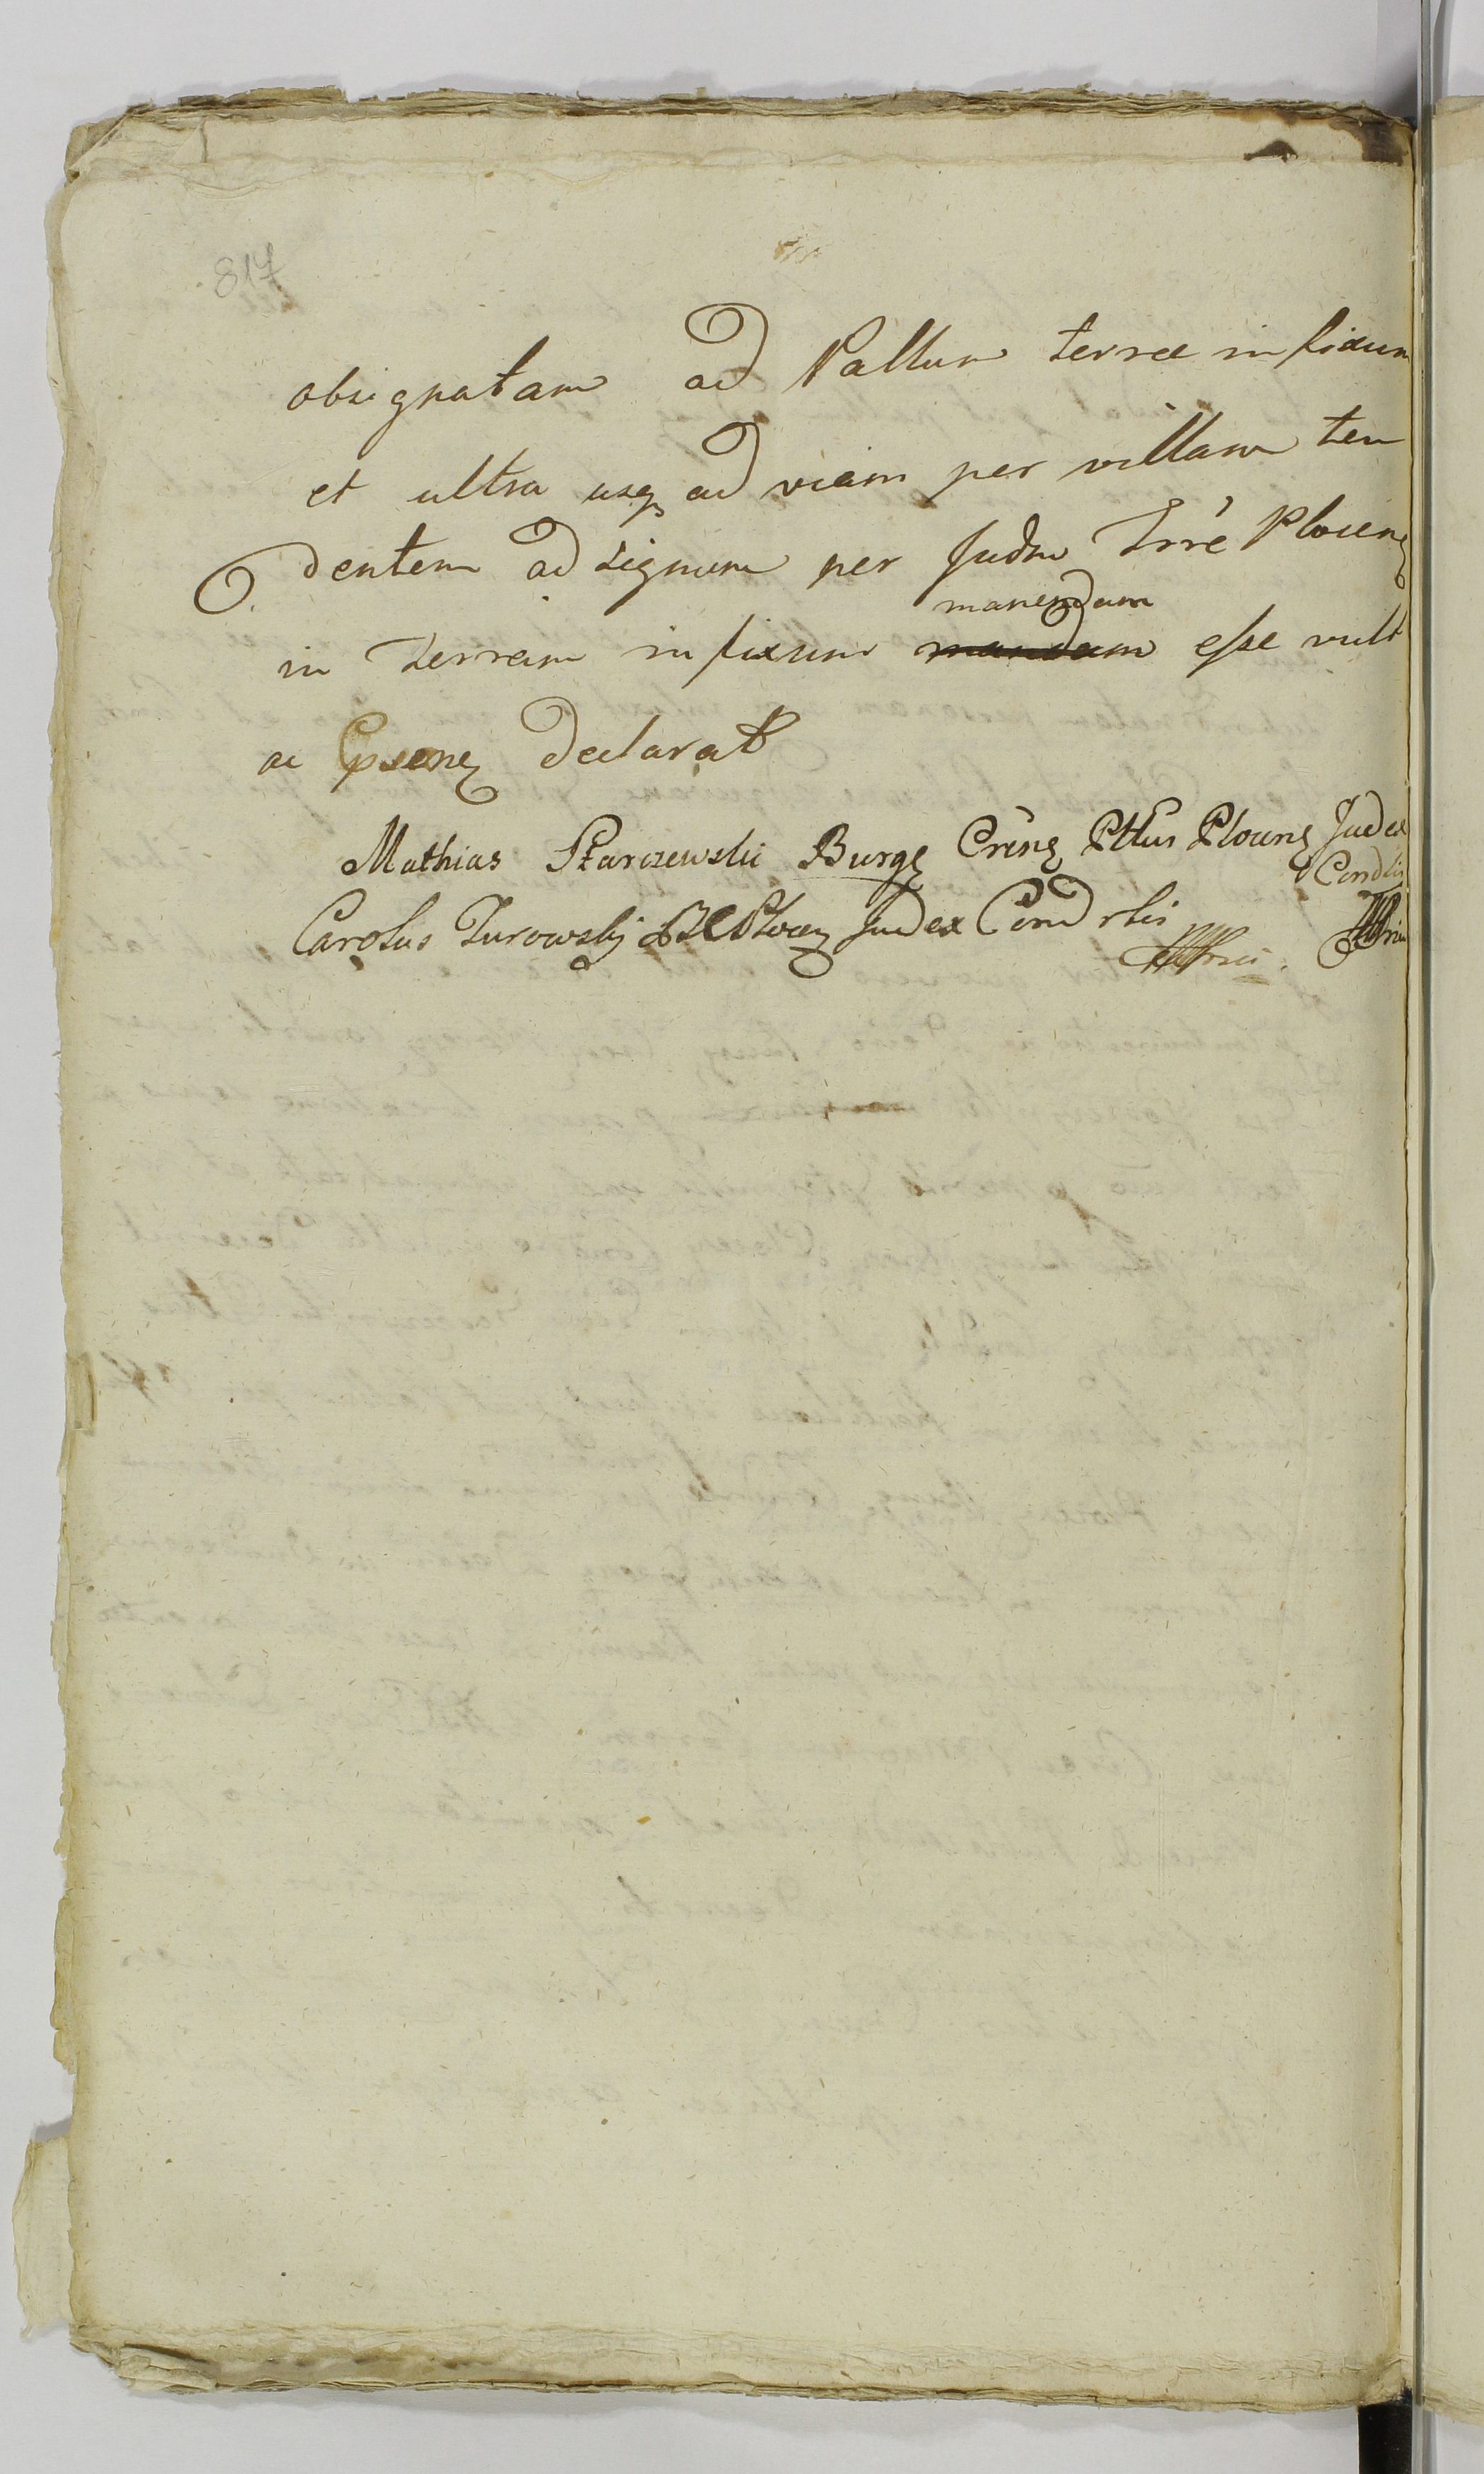 817
obsignatam ad Pallum terrae infixum
et ultra usq ad viam per villam ten
dentem ad signum per Judm Trre Plocens
manendum
in terram infixum mandum esse vult
ac Cpsene declarat
Mathias Starozewski Burgs Crens Pttus Plocens Judex
Condlis
Carolus Turowsky Plocen Judex Condrlis